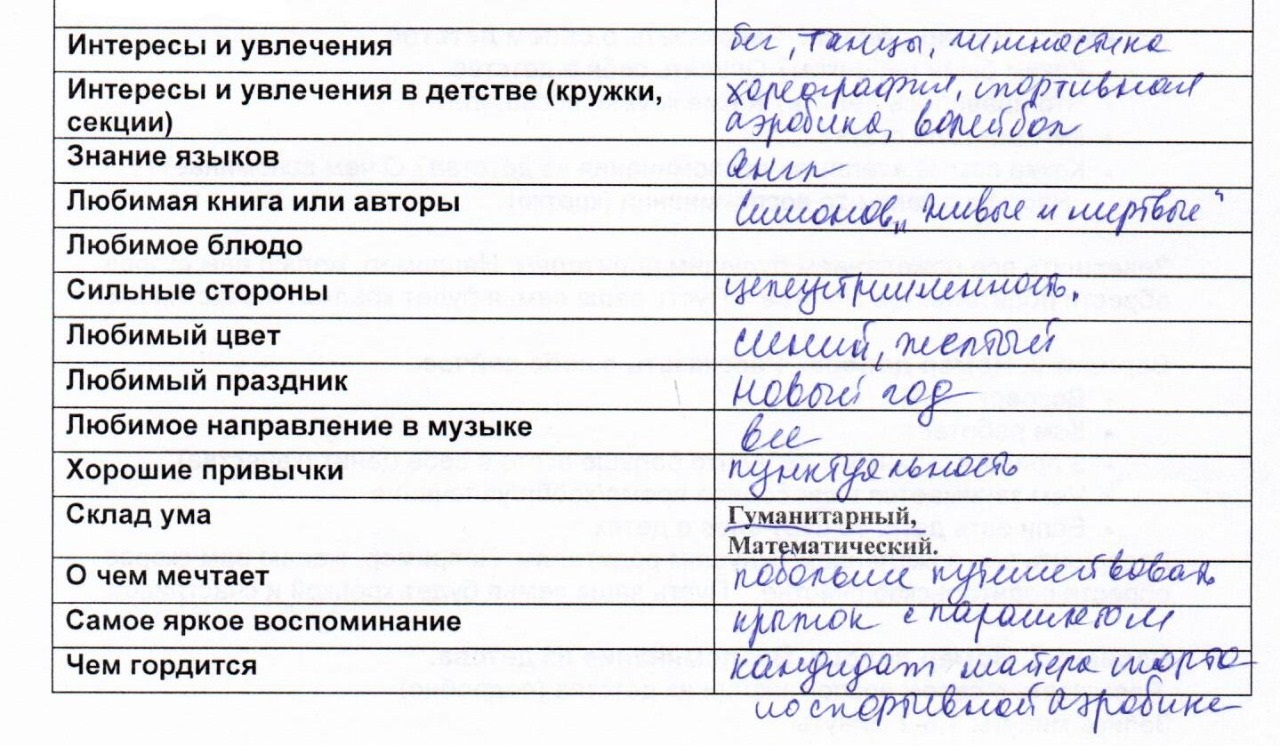 Интересы и увлечения бег, танцы, гимнастика
Интересы и увлечения в детстве (кружки, хореография, спортивная
секции) аэробика, волейбол
Знание языков англ
Любимая книга или авторы Симонов „Живые и мертвые“
Любимое блюдо
Сильные стороны целеустремленность.
Любимый цвет синий, желтый
Любимый праздник новый год
Любимое направление в музыке все
Хорошие привычки пунктуальность
Склад ума Гуманитарный,
Математический.
О чем мечтает побольше путешествовать
Самое яркое воспоминание прыжок с парашютом
Чем гордится кандидат мастера спорта
по спортивной аэробике